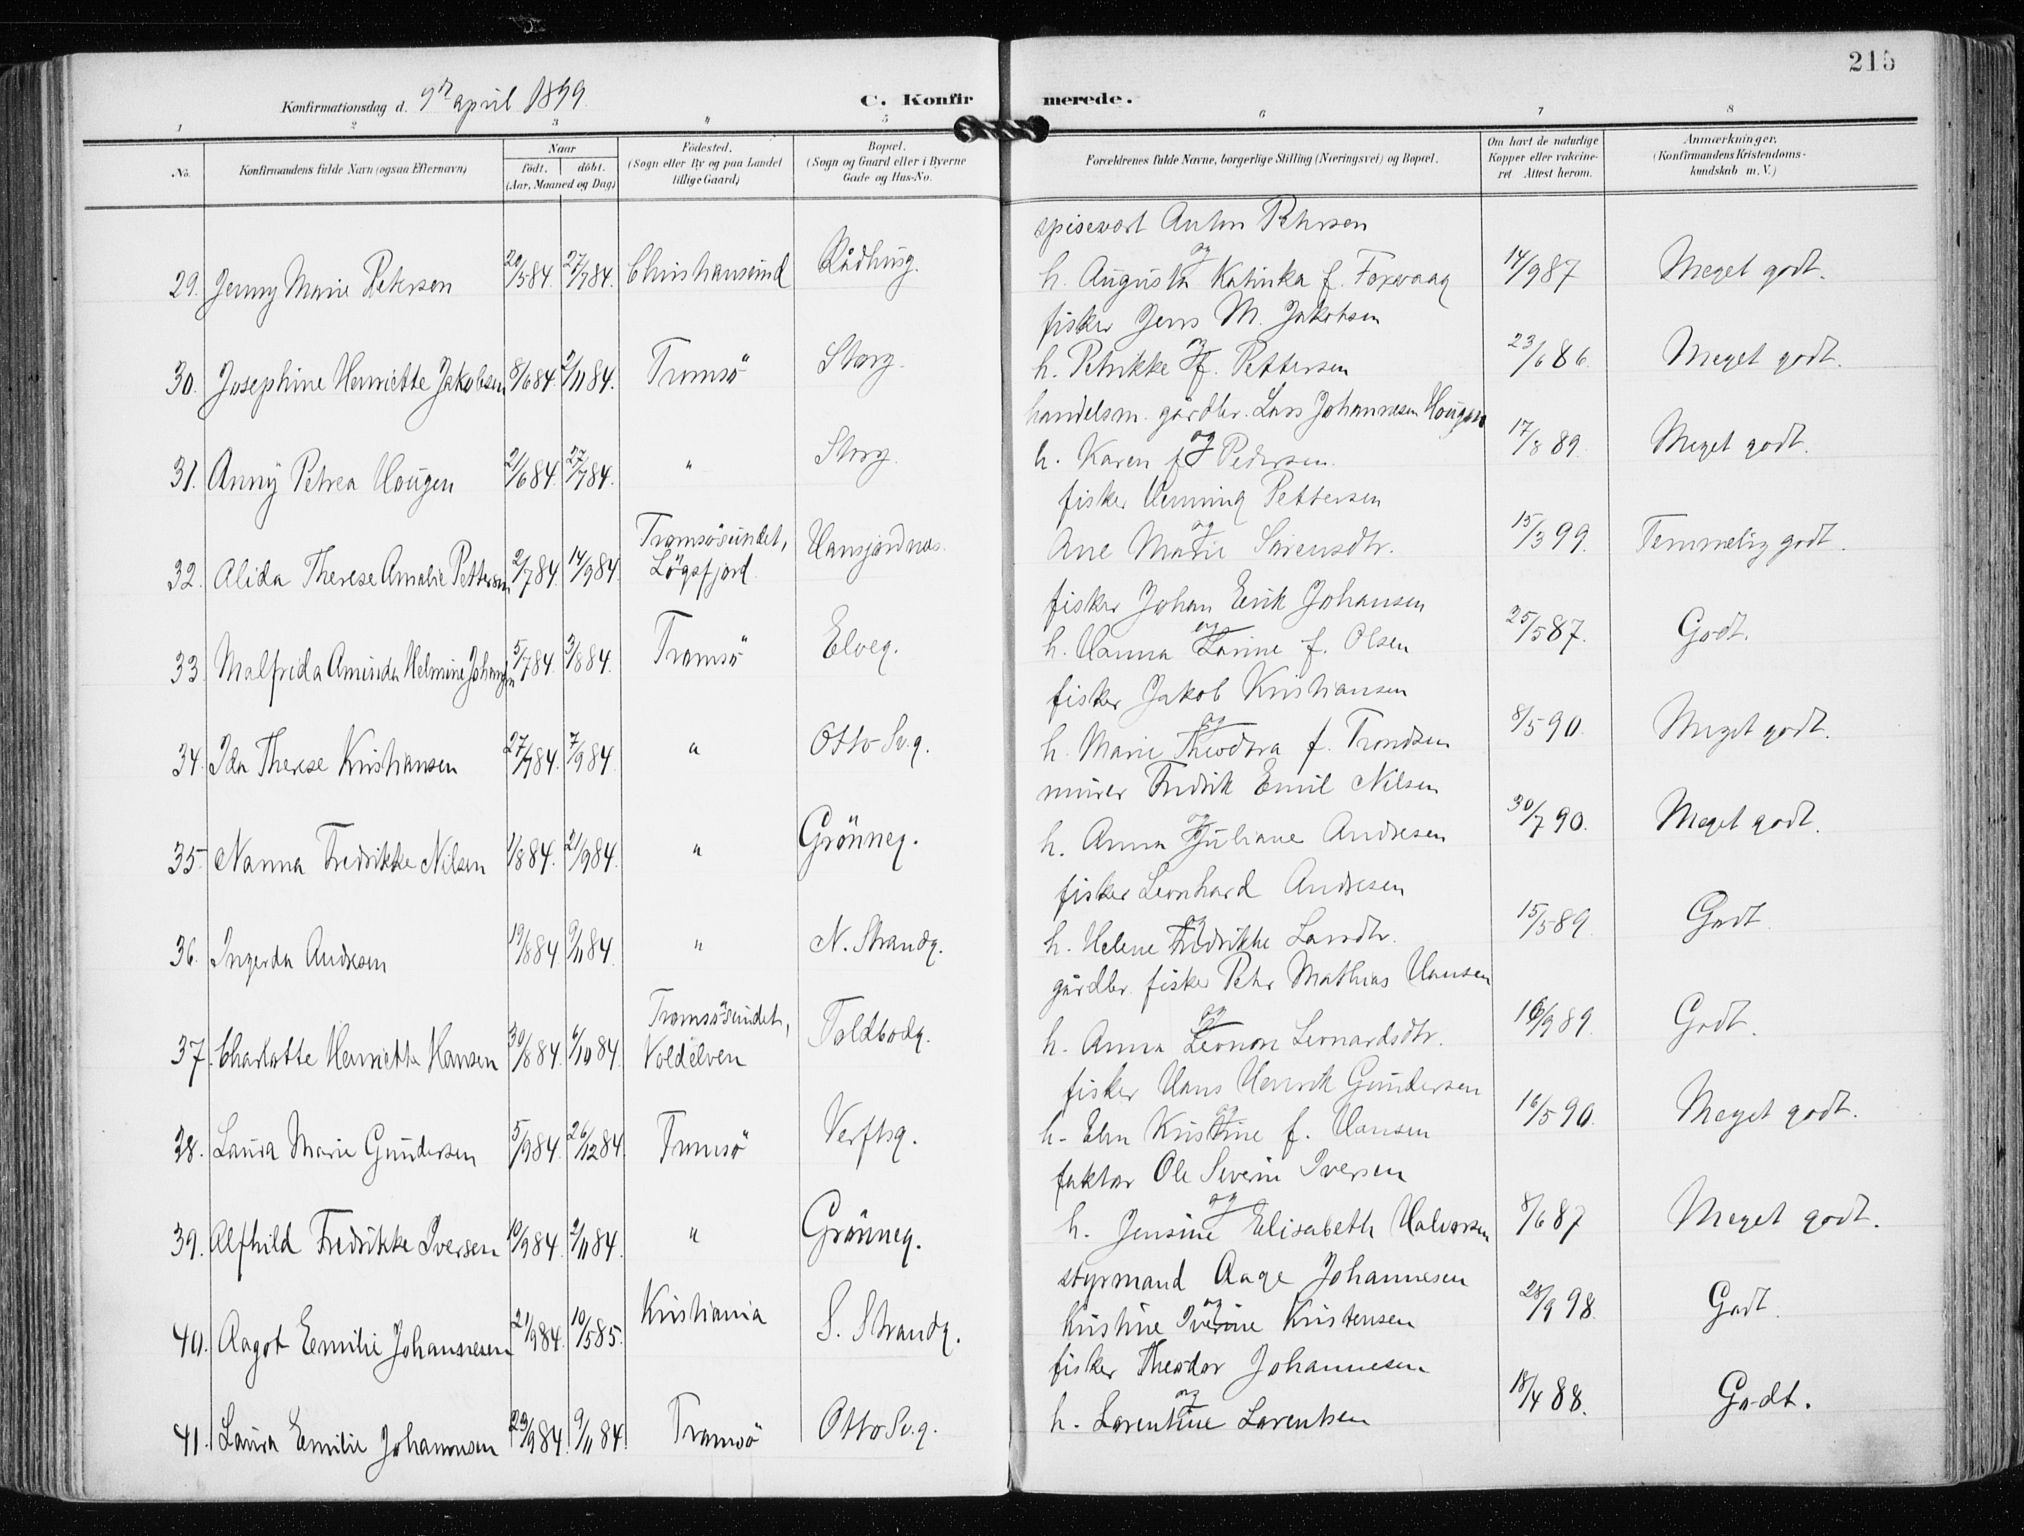 215
Konfirmationsdag d. 9de april 1899.
C. Konfirmerede.
1 2 3 4 5 6 7 8
No.
Konfirmandens fulde Navn (ogsaa Efternavn)
Naar
födt. döbt.
(Aar, Maaned og Dag)
Födested.
(Sogn eller By og paa Landet
tillige Gaard)
Bopæl.
(Sogn og Gaard eller i Byerne
Gade og Hus-No.
Forældrenes fulde Navne, borgerlige Stilling (Næringsvei) og Bopæl.
Om havt de naturlige
Kopper eller vakcine-
ret Attest herom.
Anmærkninger.
(Konfirmandens Kristendoms-
kundskab m. V.)
spisevært Anton Petersen
og
29. Jenny Marie Petersen 20/5 84. 27/7 84. Christiansund Rådhusg. h. Augusta Katinka f. Foxvaag 14/9 87 Meget godt.
fisker Jens M. Jakobsen
og
30. Josephine Henriette Jakobsen 8/6 84. 2/11 84. Tromsö Storg. h. Petrikke f. Pettersen 23/6 86. Meget godt.
handelsm. gårdbr. Lars Johannesen Hougen
og
31. Anny Petrea Hougen 21/6 84. 27/7 84. " Storg. h. Karen f. Pedersen. 17/8 89. Meget godt.
fisker Henning Pettersen
og
32. Alida Therese Amalie Pettersen 2/7 84. 14/9 84. Tromsösundet, Lögsfjord Hansjordnes. Ane Marie Sörensdtr. 15/3 99. Temmelig godt.
fisker Johan Erik Johansen
og
33. Malfrida Aminda Helmine Johansen 5/7 84. 3/8 84. Tromsö Elveg. h. Hanna Larine f. Olsen 25/5 87. Godt.
fisker Jakob Kristiansen
og
34. Ida Therese Kristiansen 27/7 84. 7/9 84. " Otto Sv.g. h. Marie Theodora f. Trondsen 8/5 90. Meget godt.
murer Fredrik Emil Nilsen
og
35. Nanna Fredrikke Nilsen 1/8 84. 21/9 84. " Grönneg. h. Anna Juliane Andresen 30/7 90. Meget godt.
fisker Leonhard Andresen
og
36. Ingerda Andresen 19/8 84 9/11 84. " N. Strandg. h. Helene Fredrikke Larsdtr. 15/5 89. Godt
gårdbr. fisker Peter Mathias Hansen
og
37. Charlotte Henriette Hansen 30/8 84. 6/10 84. Tromsösundet, Voldelven Toldbodg. h. Anna Leonore Leonardsdtr. 16/9 89. Godt.
fisker Hans Henrik Gundersen
og
38. Laura Marie Gundersen 5/9 84. 26/12 84. Tromsö Verftsg. h. Elen Kristine f. Hansen 16/5 90. Meget godt.
faktor Ole Severin Iversen
og
39. Alfhild Fredrikke Iversen 10/9 84. 2/11 84. " Grönneg. h. Jensine Elisabeth Halvorsen 8/6 87 Meget godt.
styrmand Aage Johannesen
og
40. Aagot Emilie Johannesen 21/9 84. 10/5 85. Kristiania S. Strandg. Kristine Iverine Kristensen 28/9 98. Godt.
fisker Theodor Johannesen
og
41. Laura Emilie Johannesen 29/9 84. 9/11 84. Tromsö Otto Sv.g. h. Larentine Larentsen 18/4 88. Godt.